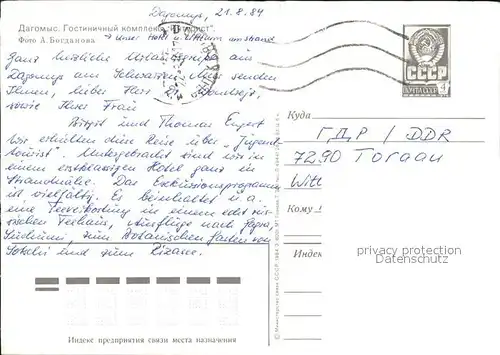 Дагомыс, 21.8.84
Дагомыс. Гостиничный комплекс "Интурист".
Фото А. Богданова
→ Unser Hotel u. am Strand
Ganz herzliche Urlaubsgrüße aus
Dagomys am Schwarzen Meer senden
Ihnen, lieber Herr
sowie Ihrer Frau
und Thomas Engert
Wir erhielten diese Reise über "Jugend-
tourist". Untergebracht sind wir in
einem erstklassigen Hotel ganz in
Strandnähe. Das Exkursionsprogramm
ist vielfältig. Es beinhaltet u.a.
eine Teeverkostung in einem echt rus-
sischen Teehaus, Ausflüge nach
Suchumi, zum Botanischen Garten von
Sotschi und zum Rizasee.
СССР
ПОЧТА
4
Куда
ГДР / DDR
7290 Торгау
Witt
Кому
Индекс
privacy protection
Datenschutz
Индекс предприятия связи места назначения